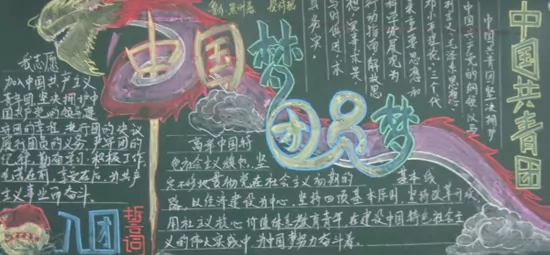 中国梦
团员梦
中国共青团
中国共青团坚决拥护
中国共产党的纲领,以马
克思
列主义、毛泽东思想、
邓小平理论、“三个代
表”重要思想和
科学发展观为
行动指南,解放思
想,实事求是,
与时俱进,求
真务实。
我志愿
加入中国共产主义
青年团,坚决拥护中
国共产党的领导,遵
守团的章程,执行团的决议
履行团员的义务,严守团的
纪律,勤奋学习,积极工作,
吃苦在前,享受在后,为共产
主义事业而奋斗。
入团
誓词
高举中国特
色社会主义旗帜,坚
定不移地贯彻党在社会主义初期的
基本线
路,以经济建设为中心,坚持四项基本原则,坚持改革开放,
用社会主义核心价值体系教育青年,在建设中国特色社会主
义的伟大实践中,为中国梦努力奋斗着。